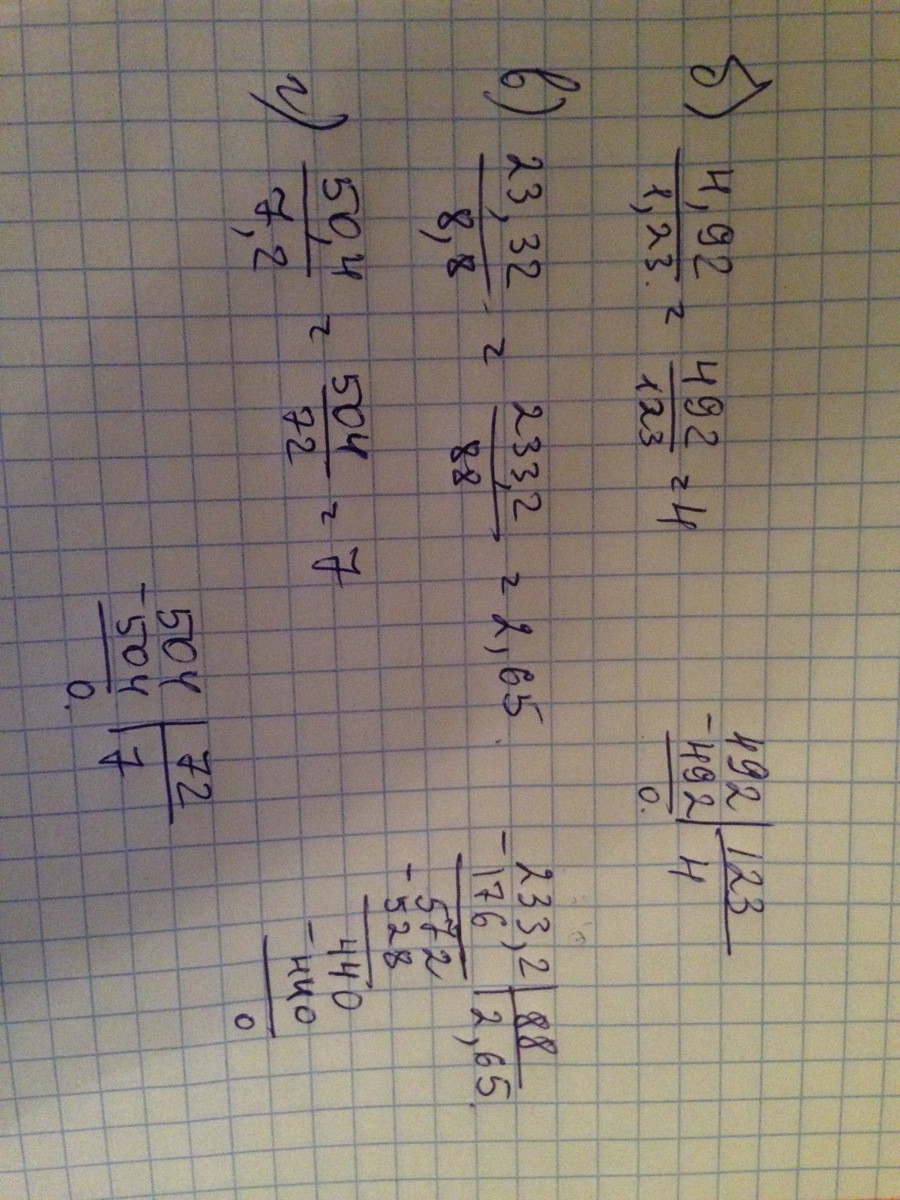 б) 4,92/1,23 = 492/123 = 4
492 | 123
-492 | 4
0.
в) 23,32/8,8 = 233,2/88 = 2,65
233,2 | 88
-176 | 2,65
572
-528
440
-440
0
г) 50,4/7,2 = 504/72 = 7
504 | 72
-504 | 7
0.